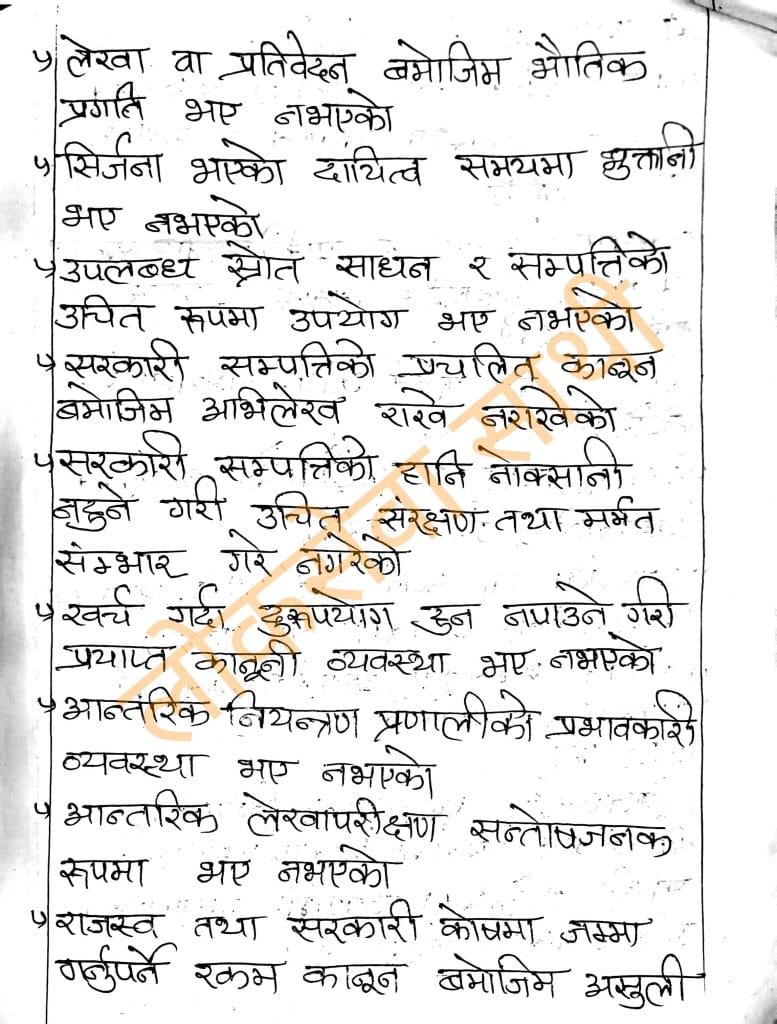 लेखा वा प्रतिवेदन बमोजिम भौतिक
प्रगति भए नभएको
सिर्जना भएको दायित्व समयमा भुक्तानी
भए नभएको
उपलब्ध स्रोत साधन र सम्पत्तिको
उचित रुपमा उपयोग भए नभएको
सरकारी सम्पत्तिको प्रचलित कानून
बमोजिम अभिलेख राखे नराखेको
सरकारी सम्पत्तिको हानि नोक्सानी
नहुने गरी उचित संरक्षण तथा मर्मत
संम्भार गरे नगरेको
खर्च गर्दा दुरुपयोग हुन नपाउने गरी
प्रयाप्त कानूनी व्यवस्था भए नभएको
आन्तरिक नियन्त्रण प्रणालीको प्रभावकारी
व्यवस्था भए नभएको
आन्तरिक लेखापरीक्षण सन्तोषजनक
रुपमा भए नभएको
राजस्व तथा सरकारी कोषमा जम्मा
गर्नुपर्ने रकम कानून बमोजिम असुली
लोकसेवा साथी